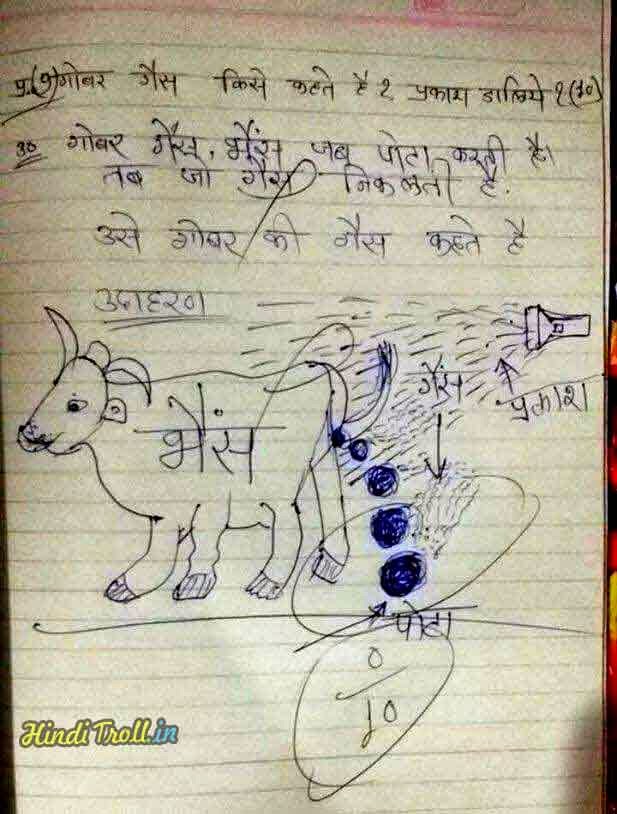 प्र.(१) गोबर गैस किसे कहते है ? प्रकाश डालिये ? (१०)
उ० गोबर गैस, भैंस जब पोटा करती है।
तब जो गैस निकलती है.
उसे गोबर की गैस कहते है
उदाहरण
गैस
प्रकाश
भैंस
पोटा
0
10
Hindi Troll.in